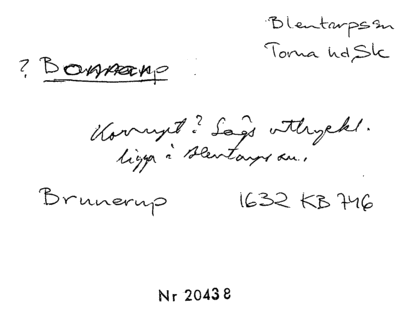 Blentarpssn
Torna hd, Sk
? Bonnarp
Korrupt? Sägs uttryckl.
ligga i Blentarps sn.
Brunerup 1632 KB 746
Nr 20438